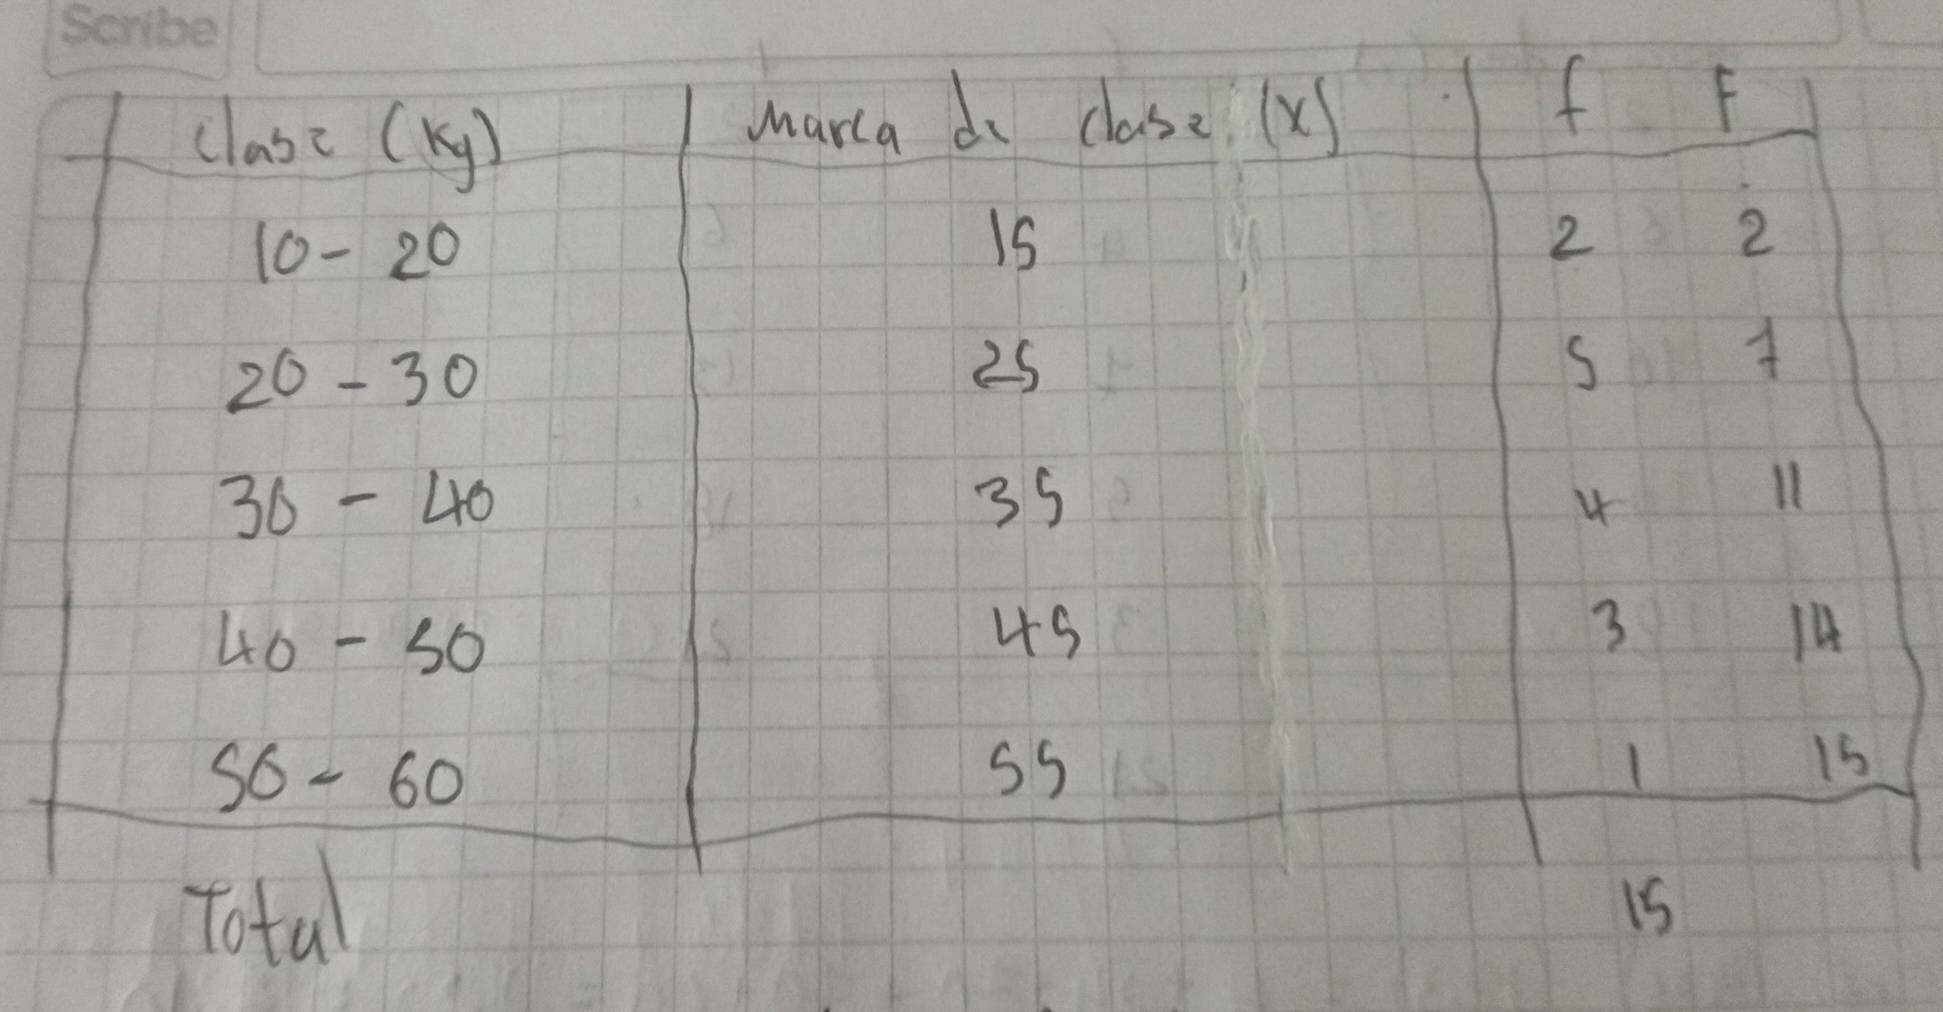 Scribe
Clase (Kg) Marca de clase (x) f F
10 - 20 15 2 2
20 - 30 25 5 7
30 - 40 35 4 11
40 - 50 45 3 14
50 - 60 55 1 15
Total 15